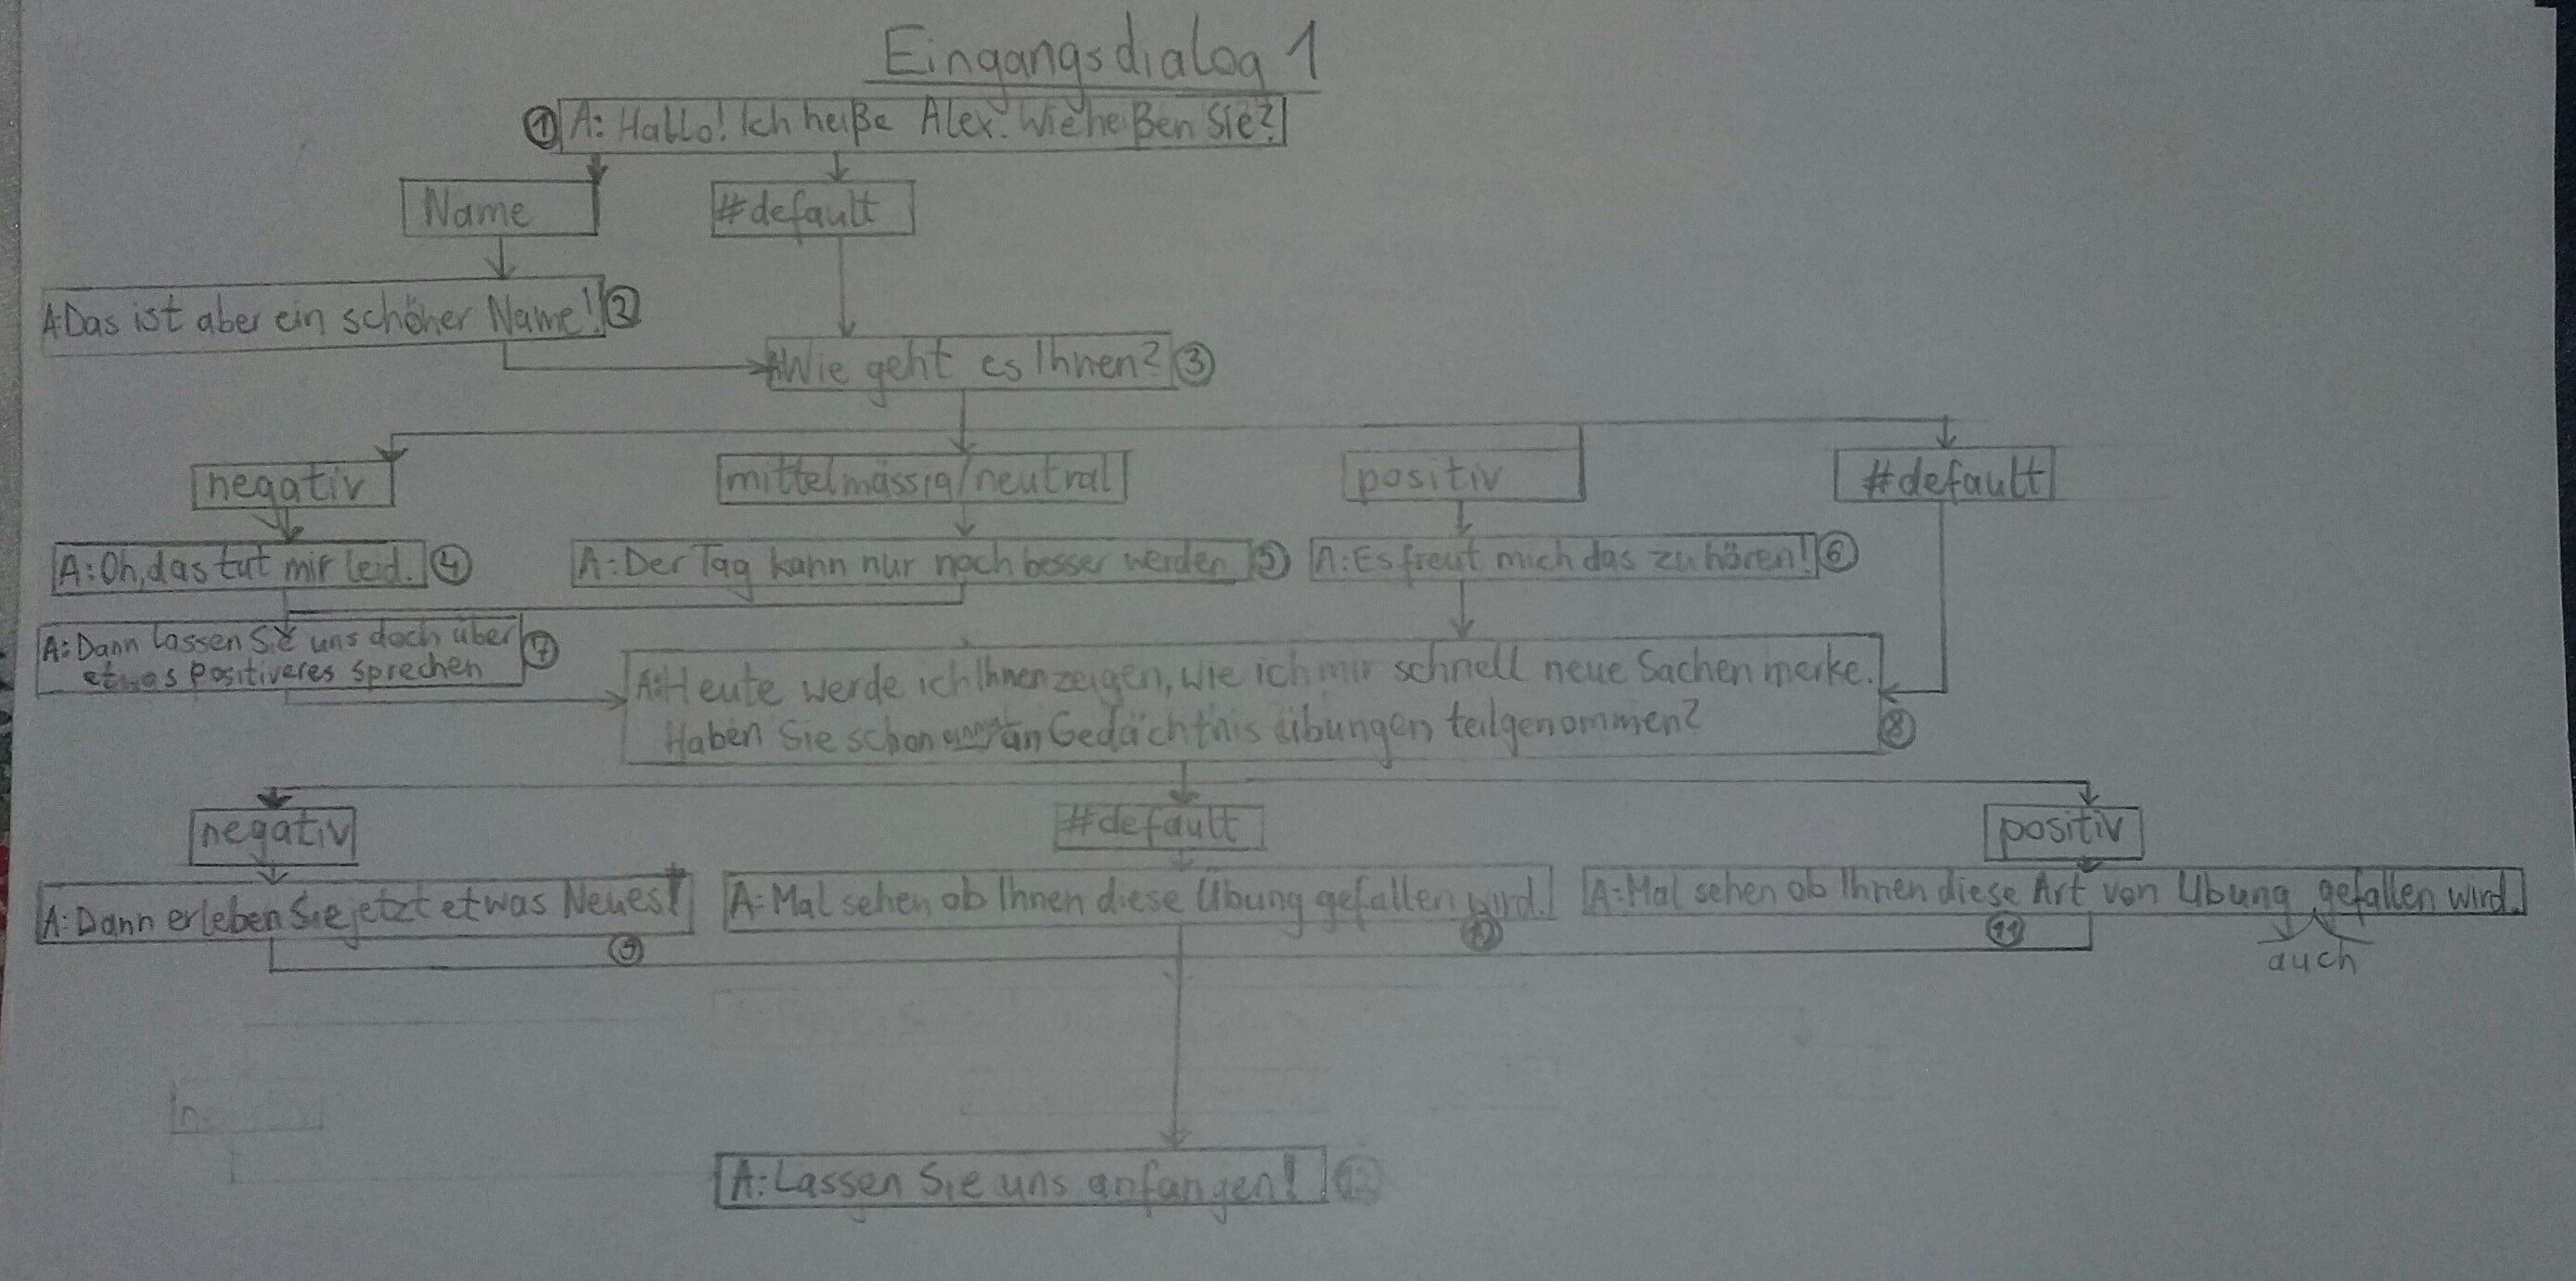 Eingangsdialog 1
① A: Hallo! Ich heiße Alex. Wie heißen Sie?
Name
#default
A: Das ist aber ein schöner Name! ②
A: Wie geht es Ihnen? ③
negativ
mittelmässig/neutral
positiv
#default
A: Oh, das tut mir leid. ④
A: Der Tag kann nur noch besser werden. ⑤
A: Es freut mich das zu hören! ⑥
A: Dann lassen Sie uns doch über
etwas positiveres sprechen ⑦
A: Heute werde ich Ihnen zeigen, wie ich mir schnell neue Sachen merke.
Haben Sie schon an Gedächtnisübungen teilgenommen? ⑧
negativ
#default
positiv
A: Dann erleben Sie jetzt etwas Neues! ⑨
A: Mal sehen ob Ihnen diese Übung gefallen wird. ⑩
A: Mal sehen ob Ihnen diese Art von Übung gefallen wird. ⑪
auch
A: Lassen Sie uns anfangen! ⑫